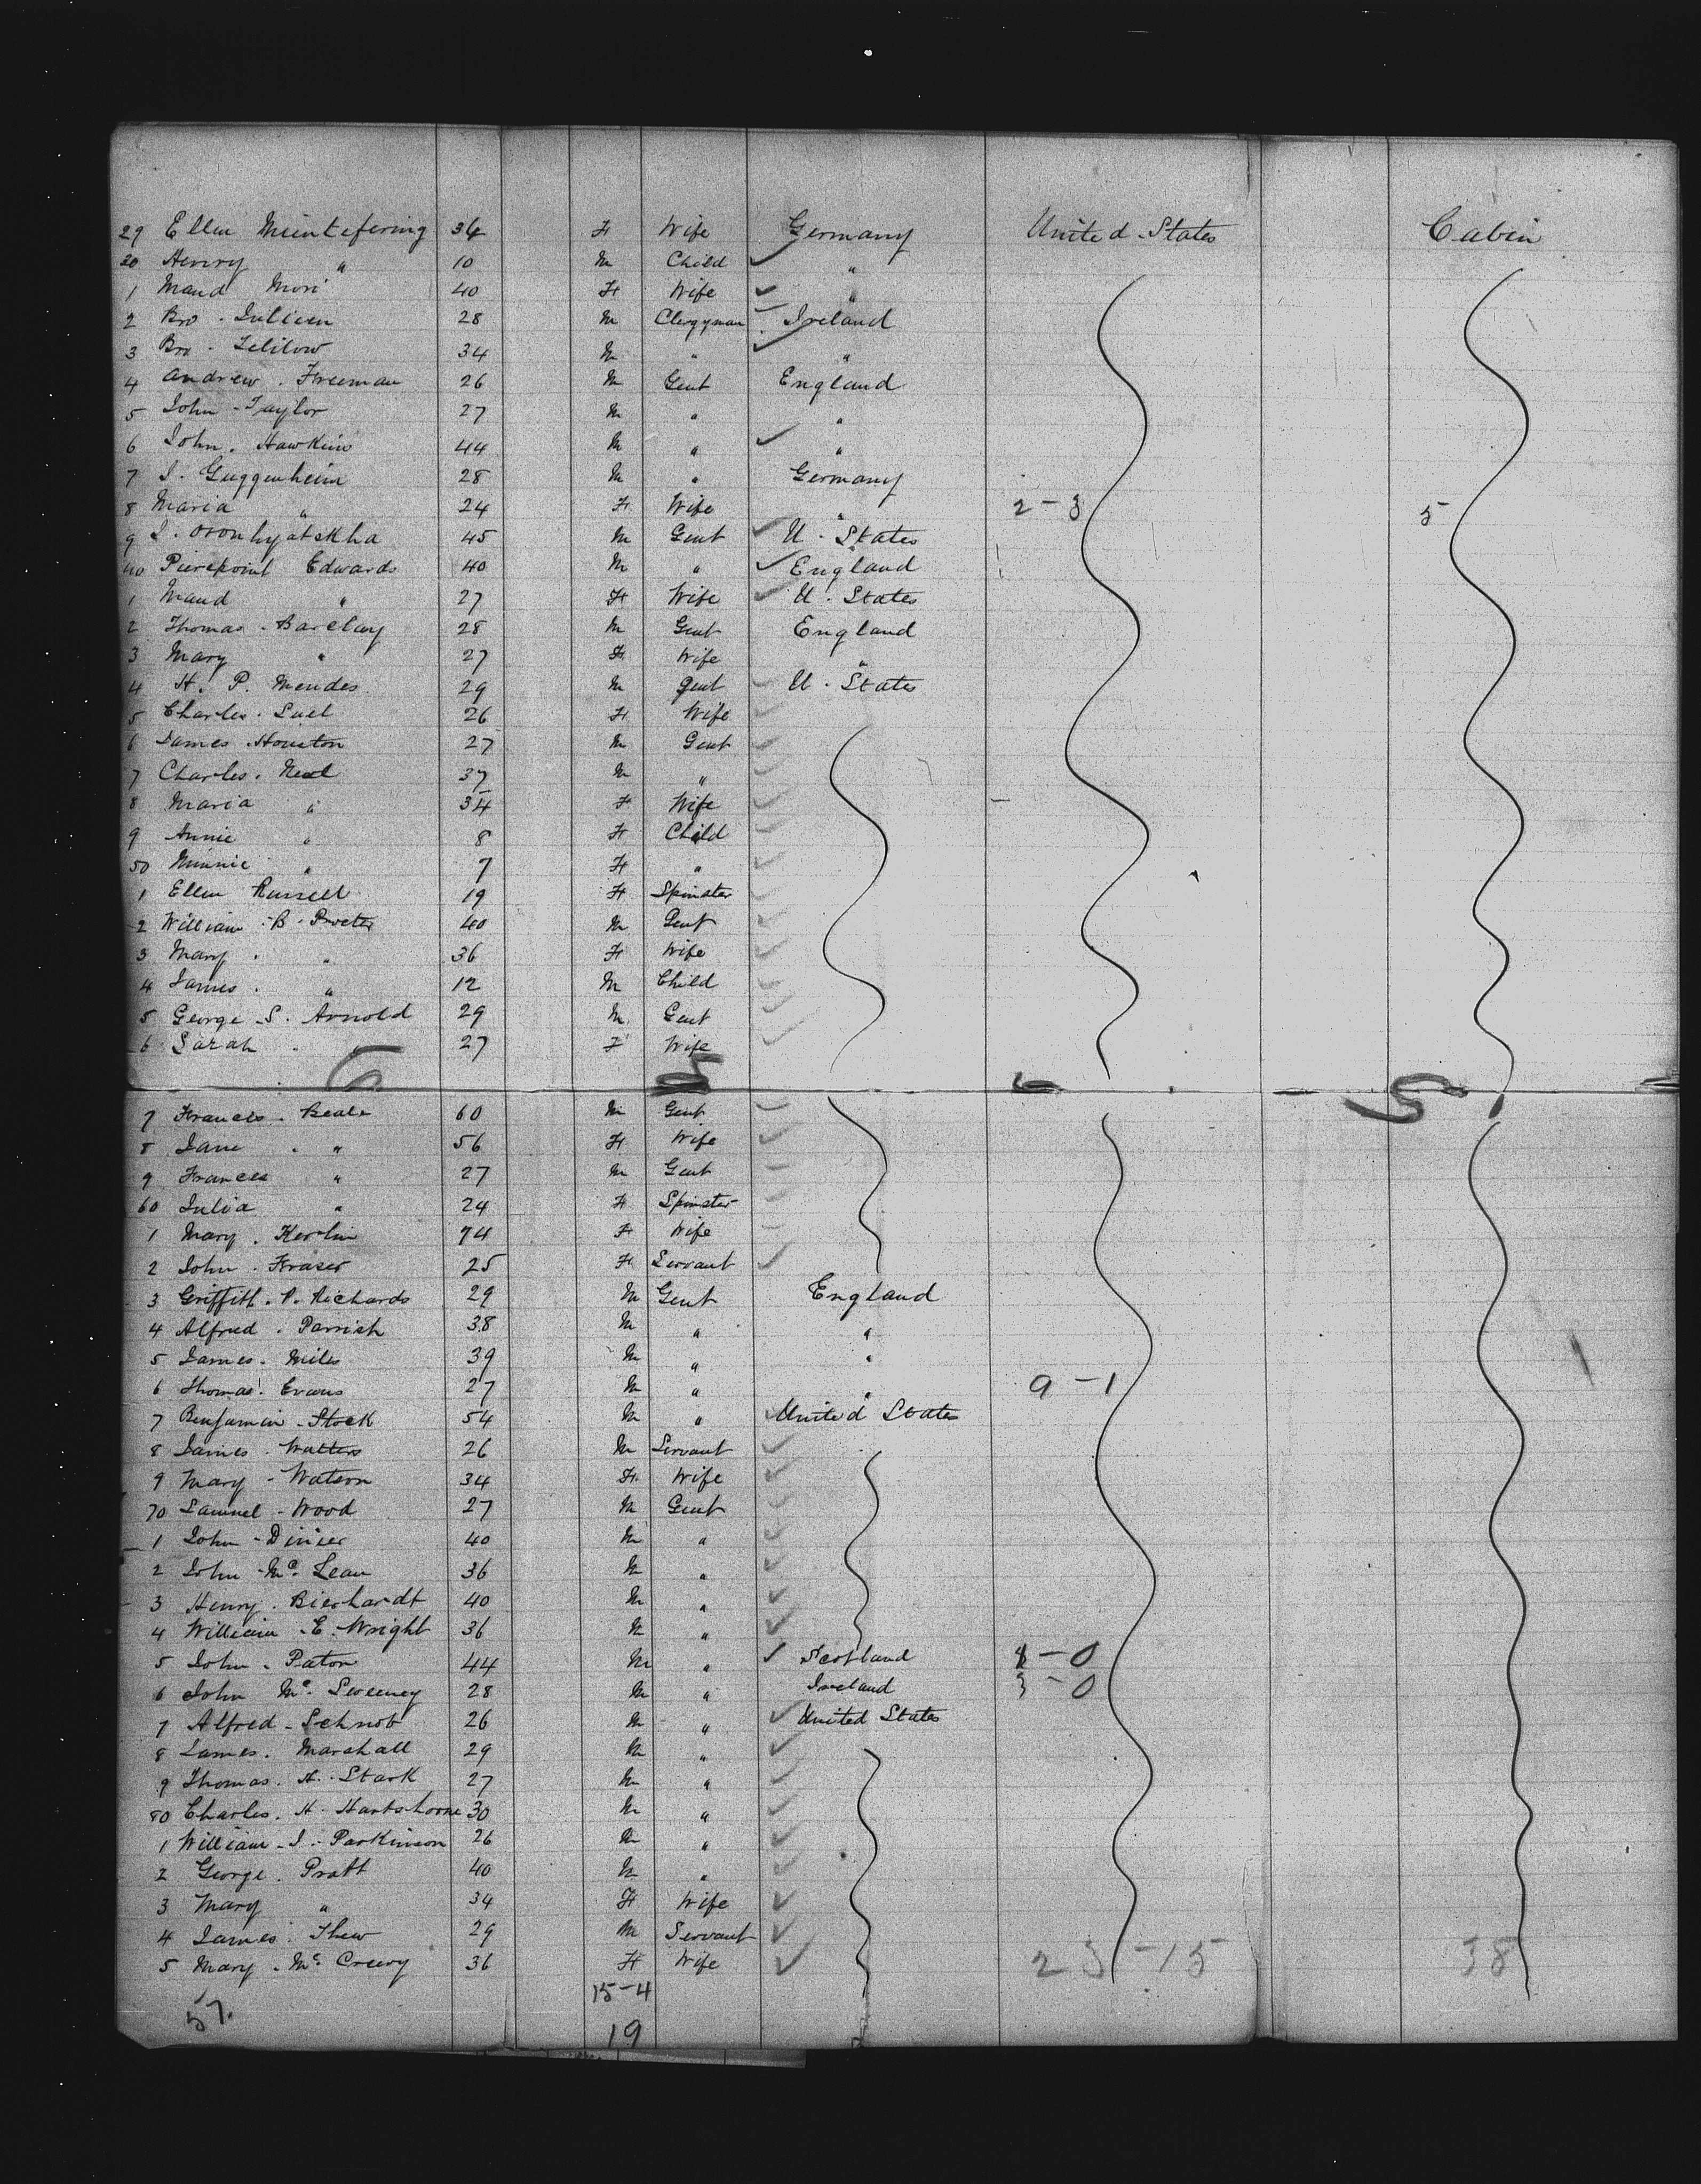 29 Ellen Muintefering 34 F Wife Germany United States Cabin
30 Henry " 10 M Child "
1 Maud Mori 40 F Wife "
2 Bro - Julien 28 M Clergyman Ireland
3 Bro - 34 M " "
4 Andrew . Freeman 26 M Gent England
5 John - Taylor 27 M " "
6 John . Hawkins 44 M " "
7 I . Guggenheim 28 M " Germany
8 Maria " 24 F Wife " 2-3 5
9 I . Oronhyatekha 45 M Gent U . States
40 Pierepoint Edwards 40 M " England
1 Maud " 27 F Wife U . States
2 Thomas - Barclay 28 M Gent England
3 Mary " 27 F Wife "
4 H. P. Mendes 29 M Gent U . States
5 Charles . 26 F Wife
6 James . Houston 27 M Gent
7 Charles . Neal 37 M "
8 Maria " 34 F Wife
9 Annie " 8 F Child
50 Minnie " 7 F "
1 Ellen Russell 19 F Spinster
2 William - B - Procter 40 M Gent
3 Mary . " 36 F Wife
4 James . " 12 M Child
5 George S. Arnold 29 M Gent
6 Sarah . " 27 F Wife
6 5 6 5
7 Francis - Beale 60 M Gent
8 Jane . " 56 F Wife
9 Frances " 27 M Gent
60 Julia " 24 F Spinster
1 Mary . Kerlin 74 F Wife
2 John - Fraser 25 F Servant
3 Griffith . P. Richards 29 M Gent England
4 Alfred . Parrish 38 M " "
5 James . Miles 39 M " "
6 Thomas . Evans 27 M " " 9-1
7 Benjamin - Stock 54 M " United States
8 James . Watters 26 M Servant
9 Mary - Watson 34 F Wife
70 Samuel - Wood 27 M Gent
1 John - 40 M "
2 John - Mc. Lean 36 M "
3 Henry . Bierhardt 40 M "
4 William - E. Wright 36 M "
5 John - Paton 44 M " Scotland 1-0
6 John Mc. Sweeney 28 M " Ireland 3-0
7 Alfred - Schnob 26 M " United States
8 James . Marshall 29 M "
9 Thomas . A. Stark 27 M "
80 Charles . H. Hartshorne 30 M "
1 William - I. Parkinson 26 M "
2 George . Pratt 40 M "
3 Mary " 34 F Wife
4 James . Thew 29 M Servant
5 Mary - Mc Creery 36 F Wife 23-15 38
15-4
57.
19